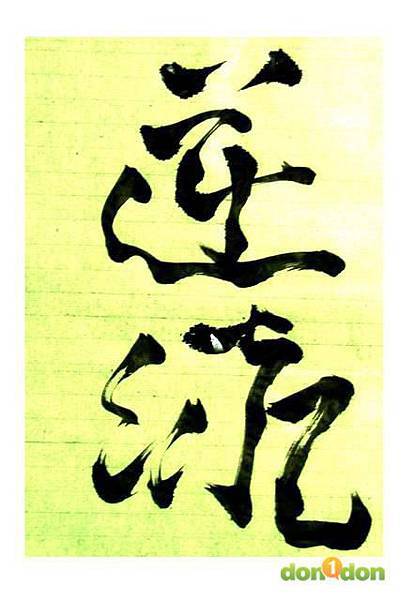 逆流
don1don